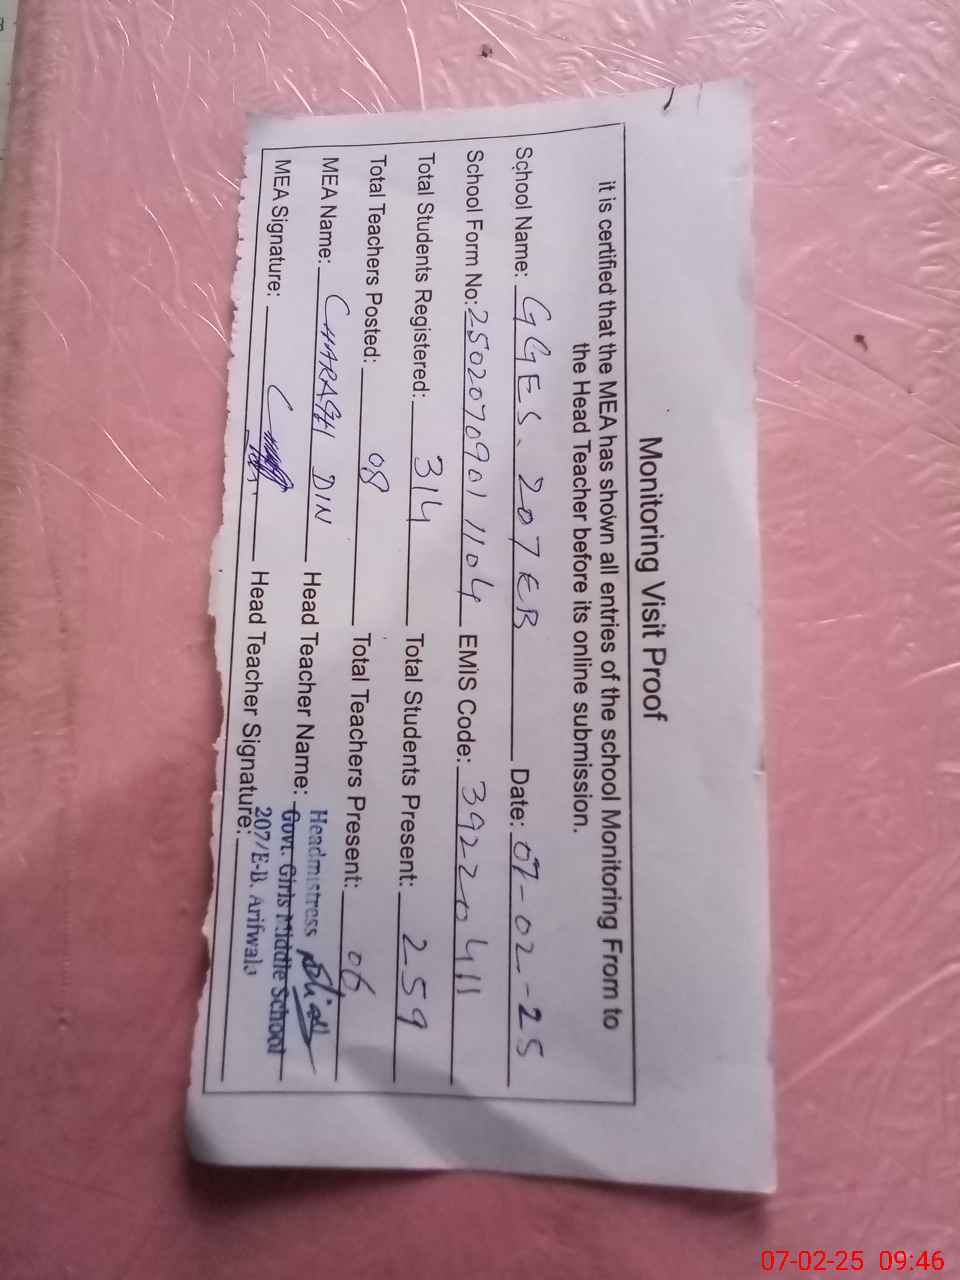 Monitoring Visit Proof
it is certified that the MEA has shown all entries of the school Monitoring From to
the Head Teacher before its online submission.
School Name: GGES. 207 EB Date: 07-02-25
School Form No: 2502070901 1104 EMIS Code: 39220411
Total Students Registered: 314 Total Students Present: 259
Total Teachers Posted: 08 Total Teachers Present: 06
MEA Name: CHARAGH DIN Head Teacher Name:
MEA Signature: Head Teacher Signature:
Headmistress
Govt. Girls Middle School
207/E-B. Arifwala
07-02-25 09:46